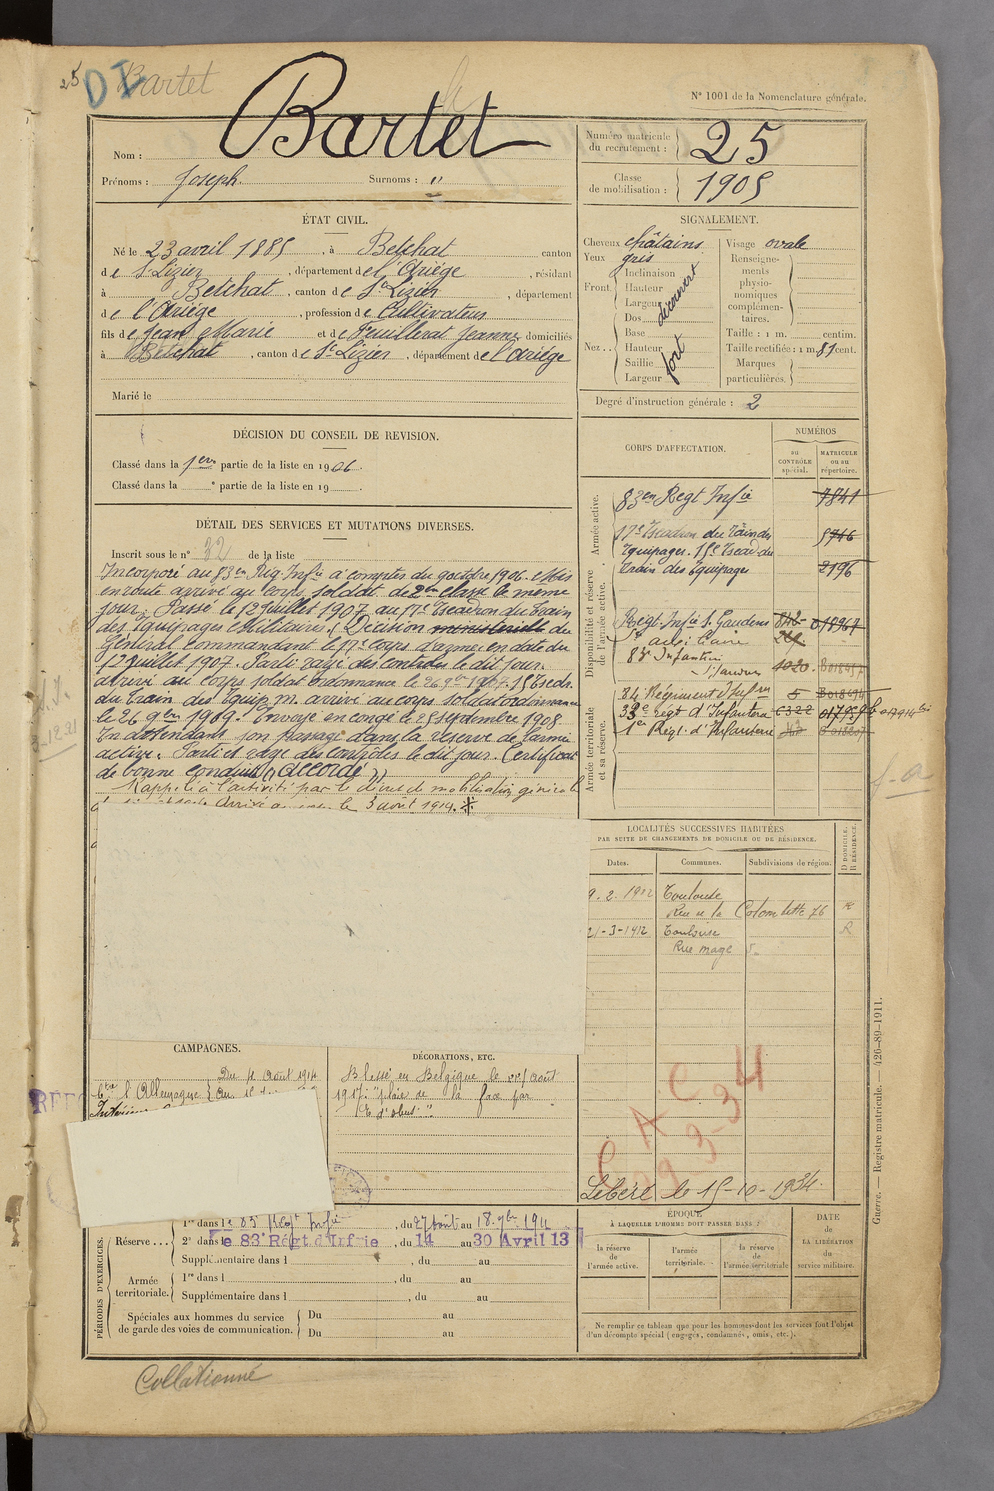 25
Bartet
N° 1001 de la Nomenclature générale.
Nom : Bartet
Prénoms : Joseph. Surnoms : "
Numéro matricule du recrutement : 25
Classe de mobilisation : 1905
ÉTAT CIVIL.
Né le 23 avril 1885, à Betchat canton
de St Lizier, département de l'Ariége, résidant
à Betchat, canton de St Lizier, département
de l'Ariége, profession de Cultivateur
fils de Jean Marie et de Jeanne domiciliés
à Betchat, canton de St Lizier, département de l'Ariége
Marié le
SIGNALEMENT.
Cheveux châtains
Yeux gris
Front.
Inclinaison
Hauteur
Largeur
découvert
Nez..
Dos
Base
Hauteur
Saillie
Largeur
fort
Visage ovale
Renseignements physionomiques complémentaires.
Taille : 1 m. centim.
Taille rectifiée : 1 m. 81 cent.
Marques particulières.
Degré d'instruction générale : 2
DÉCISION DU CONSEIL DE REVISION.
Classé dans la 1ère partie de la liste en 1906.
Classé dans la ° partie de la liste en 19
DÉTAIL DES SERVICES ET MUTATIONS DIVERSES.
Inscrit sous le n° 32 de la liste
Incorporé au 83em Rég Infie à compter du 9 octobre 1906. Mis
en route arrivé au corps soldat de 2em classe le même
jour. Passé le 12 juillet 1907 au 17e Escadron du Train
des Equipages Militaires. (Décision ministerielle du
Général Commandant le 17e Corps d'armée en date du
12 juillet 1907. Parti rayé des controles le dit jour.
arrivé au corps soldat ordonnance le 26 9bre 1907. 15 Escdr.
du Train des Equip. m. arrivé au corps soldat ordonnance
le 26 9bre 1909. Envoyé en congé le 25 septembre 1908
En attendant son passage dans la réserve de l'armée
active. Parti et rayé des contrôles le dit jour. Certificat
de bonne conduite "Accordé"
Rappelé à l'activité par le décret de mobilisation générale
arrivé le 3 août 1914. *
CORPS D'AFFECTATION.
NUMÉROS
au CONTRÔLE spécial.
MATRICULE ou au répertoire.
Armée active.
83em Regt Infie 7841
17e Escadron du Train des Equipages. 15e Escad. du 5746
Train des Equipages 2196
Disponibilité et réserve de l'armée active.
Régt Infie St Gaudens 818967
83 Infanterie 1020
Armée territoriale et sa réserve.
34 Régiment d'Infrie 5
33e régt d'Infanterie C322
1er Régt. d'Infanterie
LOCALITÉS SUCCESSIVES HABITÉES
PAR SUITE DE CHANGEMENTS DE DOMICILE OU DE RÉSIDENCE.
Dates. Communes. Subdivisions de région. D DOMICILE. R RÉSIDENCE.
9.2.1912 Toulouse R
Rue de la Colombette 76
21-3-1912 Toulouse R
Rue mage 5
CAMPAGNES.
Du 4 août 1914
Ctre l'Allemagne
DÉCORATIONS, ETC.
Blessé en Belgique le août
1914 "plaie de la face par
E. d'obus".
C A C
Libéré le 15-10-1934.
PÉRIODES D'EXERCICES.
Réserve...
1re dans le 83 Regt Infie, du 27 août au 18 7bre 1911
2e dans le 83e Régt d'Infrie, du 14 au 30 Avril 13
Supplémentaire dans l , du au
Armée territoriale.
1re dans l , du au
Supplémentaire dans l , du au
Spéciales aux hommes du service de garde des voies de communication.
Du au
Du au
ÉPOQUE
À LAQUELLE L'HOMME DOIT PASSER DANS :
la réserve de l'armée active.
l'armée territoriale.
la réserve de l'armée territoriale
DATE DE LA LIBÉRATION du service militaire.
Ne remplir ce tableau que pour les hommes dont les services font l'objet
d'un décompte spécial (engagés, condamnés, omis, etc.).
Guerre. — Registre matricule. — 426-89-1911.
Collationné